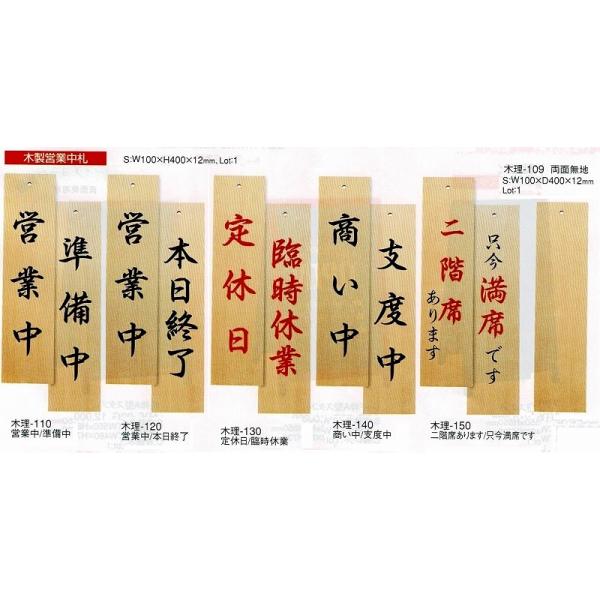 木製営業中札
S:W100×H400×12mm、Lot:1
木理-109 両面無地
S:W100×D400×12mm
Lot:1
営業中
準備中
営業中
本日終了
定休日
臨時休業
商い中
支度中
二階席あります
只今満席です
木理-110
営業中/準備中
木理-120
営業中/本日終了
木理-130
定休日/臨時休業
木理-140
商い中/支度中
木理-150
二階席あります/只今満席です